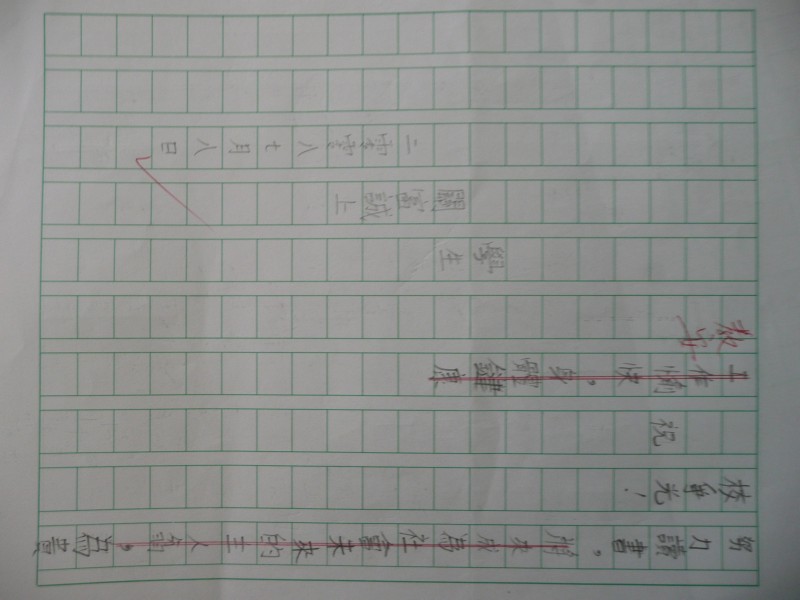 努力讀書。將來成為社會未來的主人翁，為貴
校爭光！
祝
工作愉快，身體鍵康
教安
學生
關富誠上
二零零八七月八日